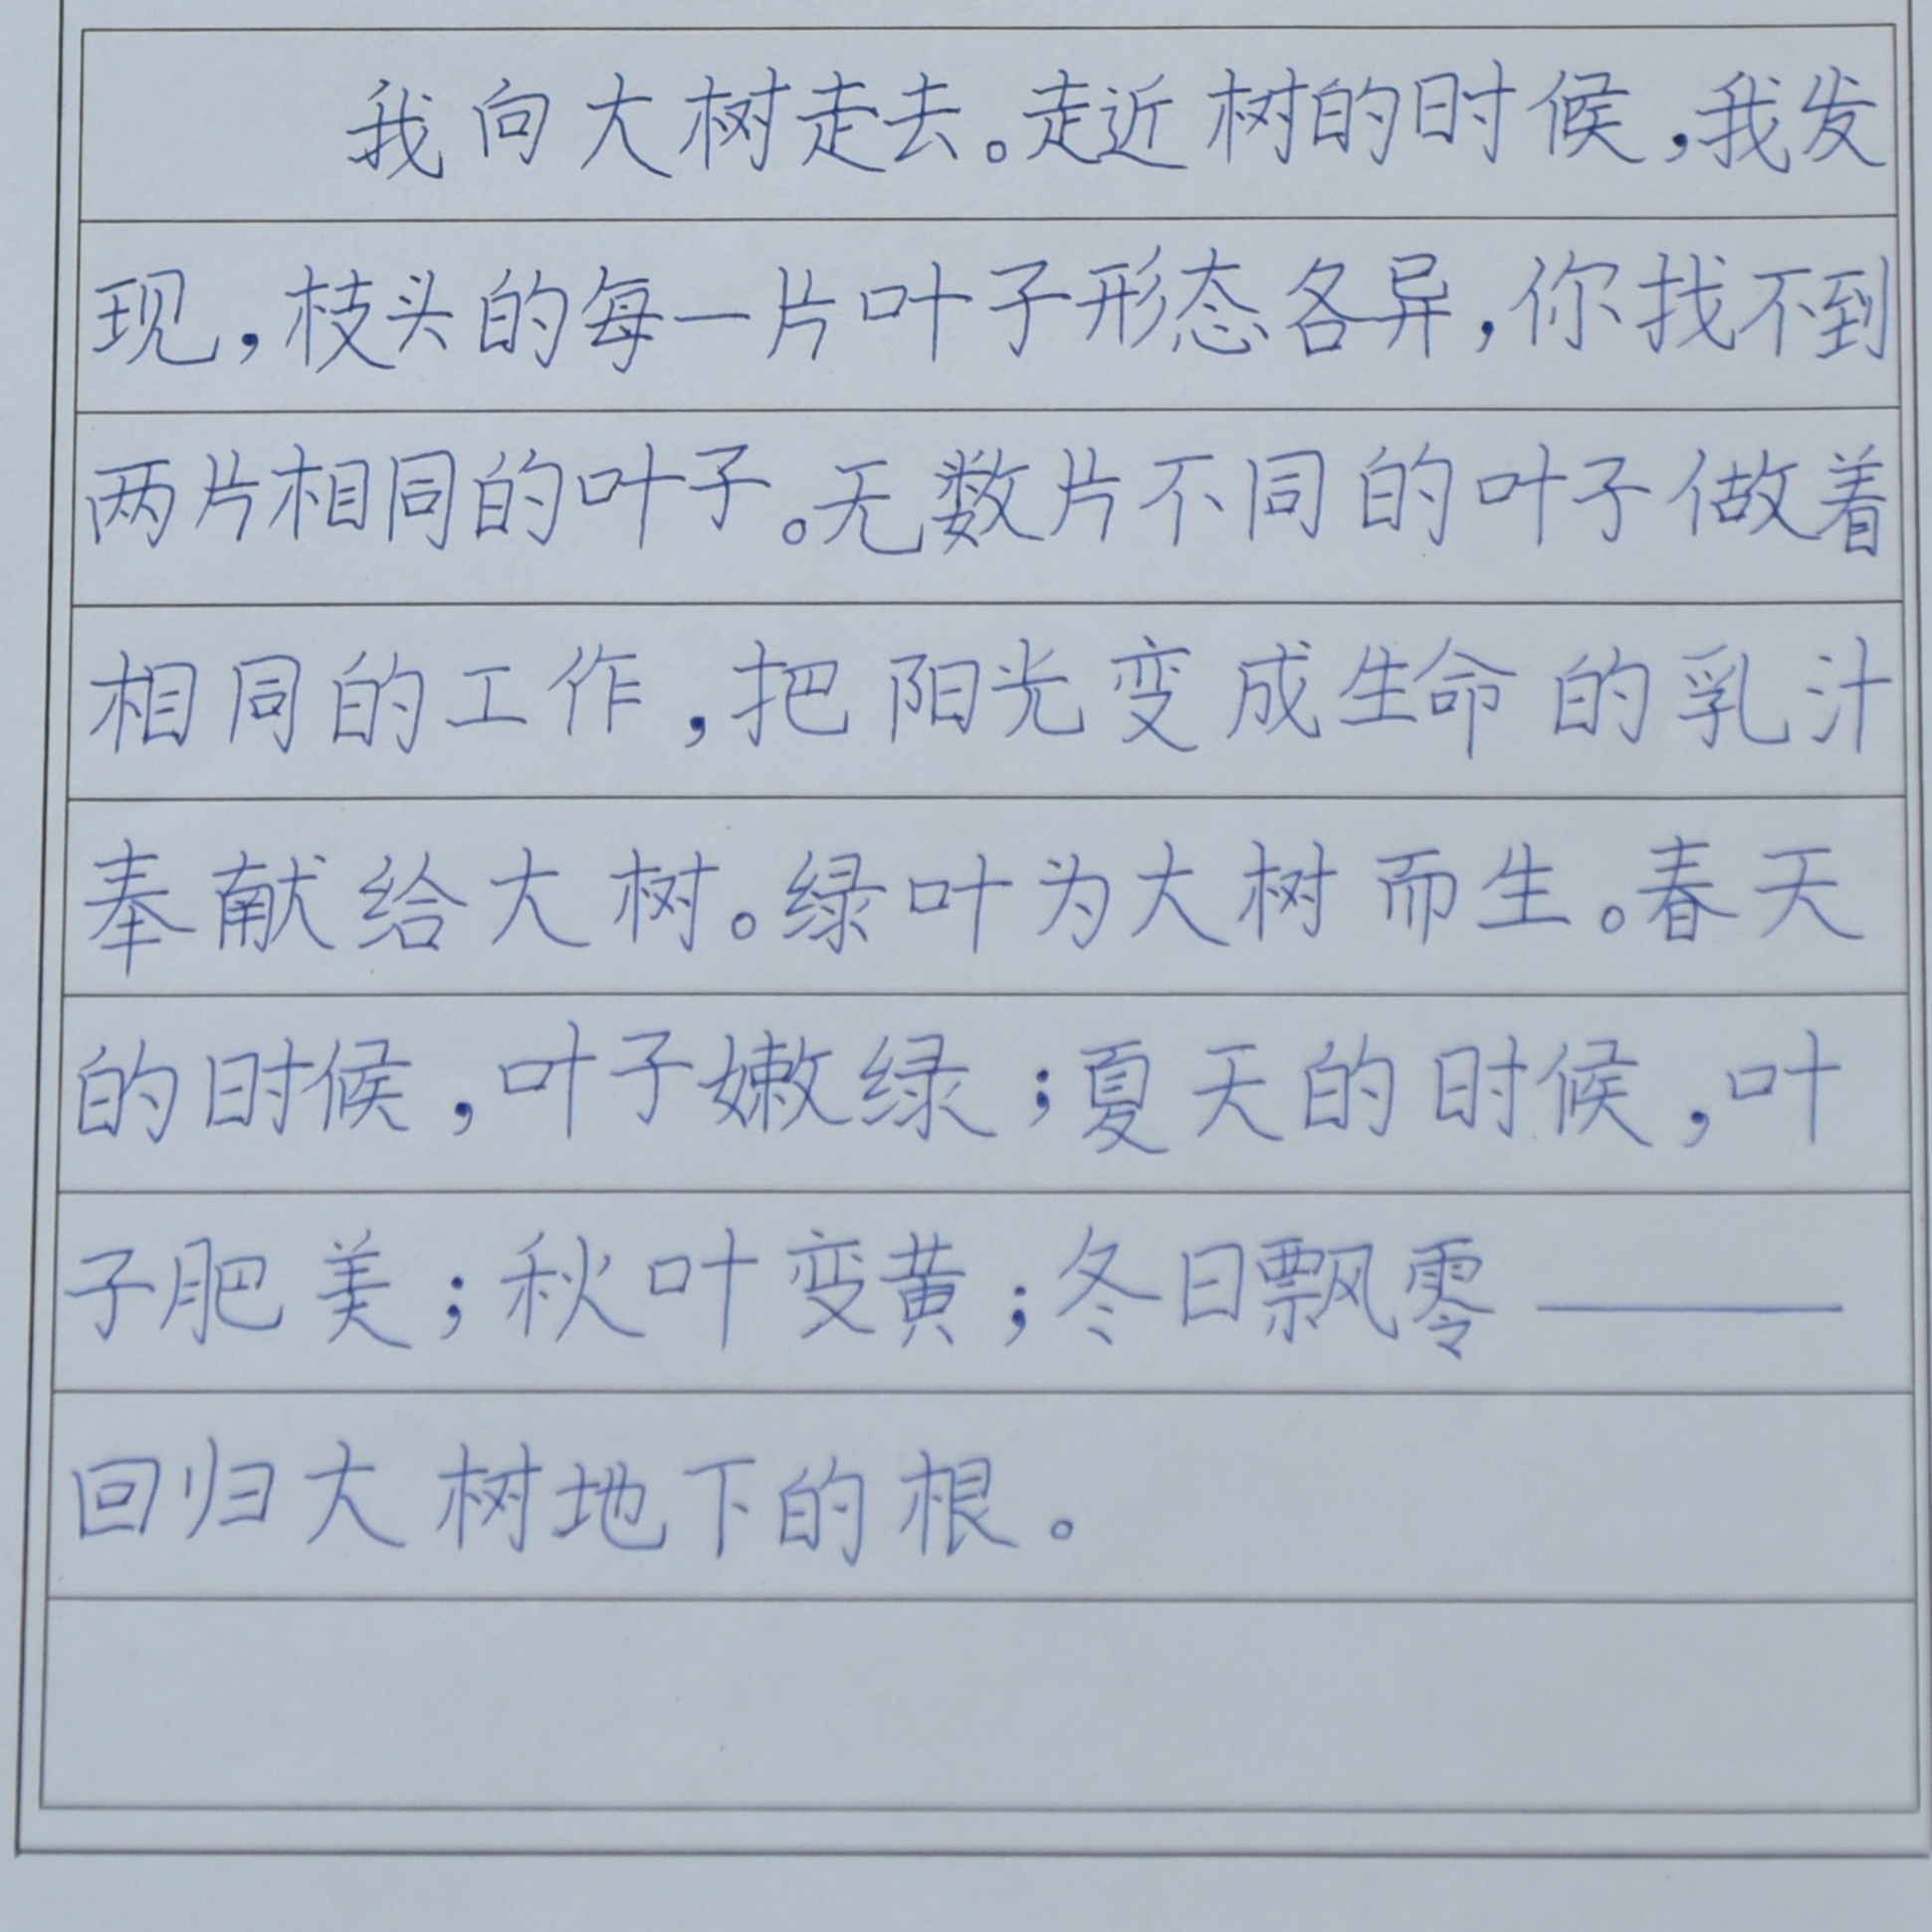 我向大树走去。走近树的时候,我发
现,枝头的每一片叶子形态各异,你找不到
两片相同的叶子。无数片不同的叶子做着
相同的工作,把阳光变成生命的乳汁
奉献给大树。绿叶为大树而生。春天
的时候,叶子嫩绿;夏天的时候,叶
子肥美;秋叶变黄;冬日飘零——
回归大树地下的根。